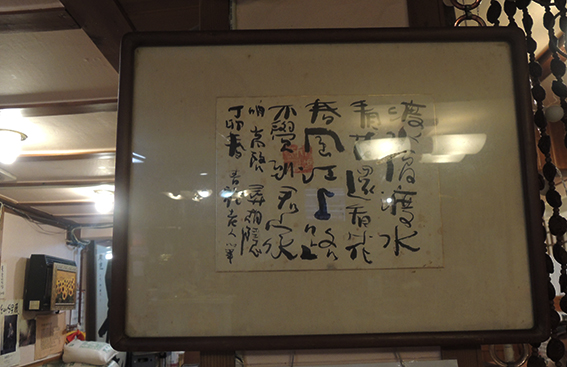 渡水復渡水
看花還看花
春風江上路
不覺到君家
明 高啓 尋胡隱君
丁卯春 老人